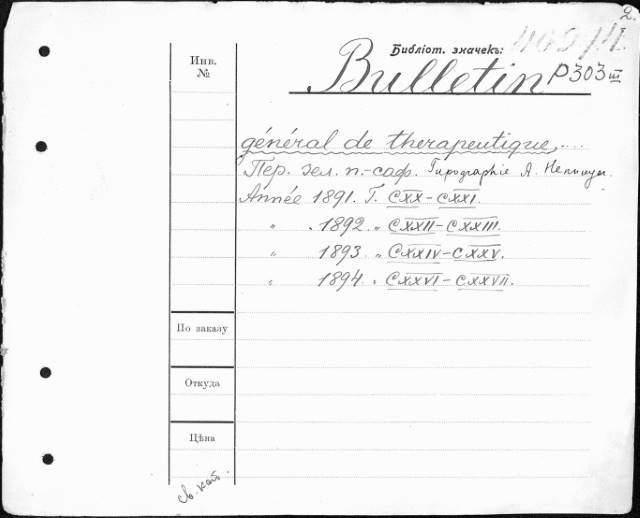 2.
Библіот. значекъ:
Инв.
№
Bulletin P303 III
général de therapeutique,....
Пер. зел. п.-саф. Typographie A. Hennuyer.
Année 1891. T. CXX-CXXI.
„ „ 1892. „ CXXII-CXXIII.
„ 1893 „ CXXIV-CXXV.
„ 1894 „ CXXVI-CXXVII.
По заказу
Откуда
Цѣна